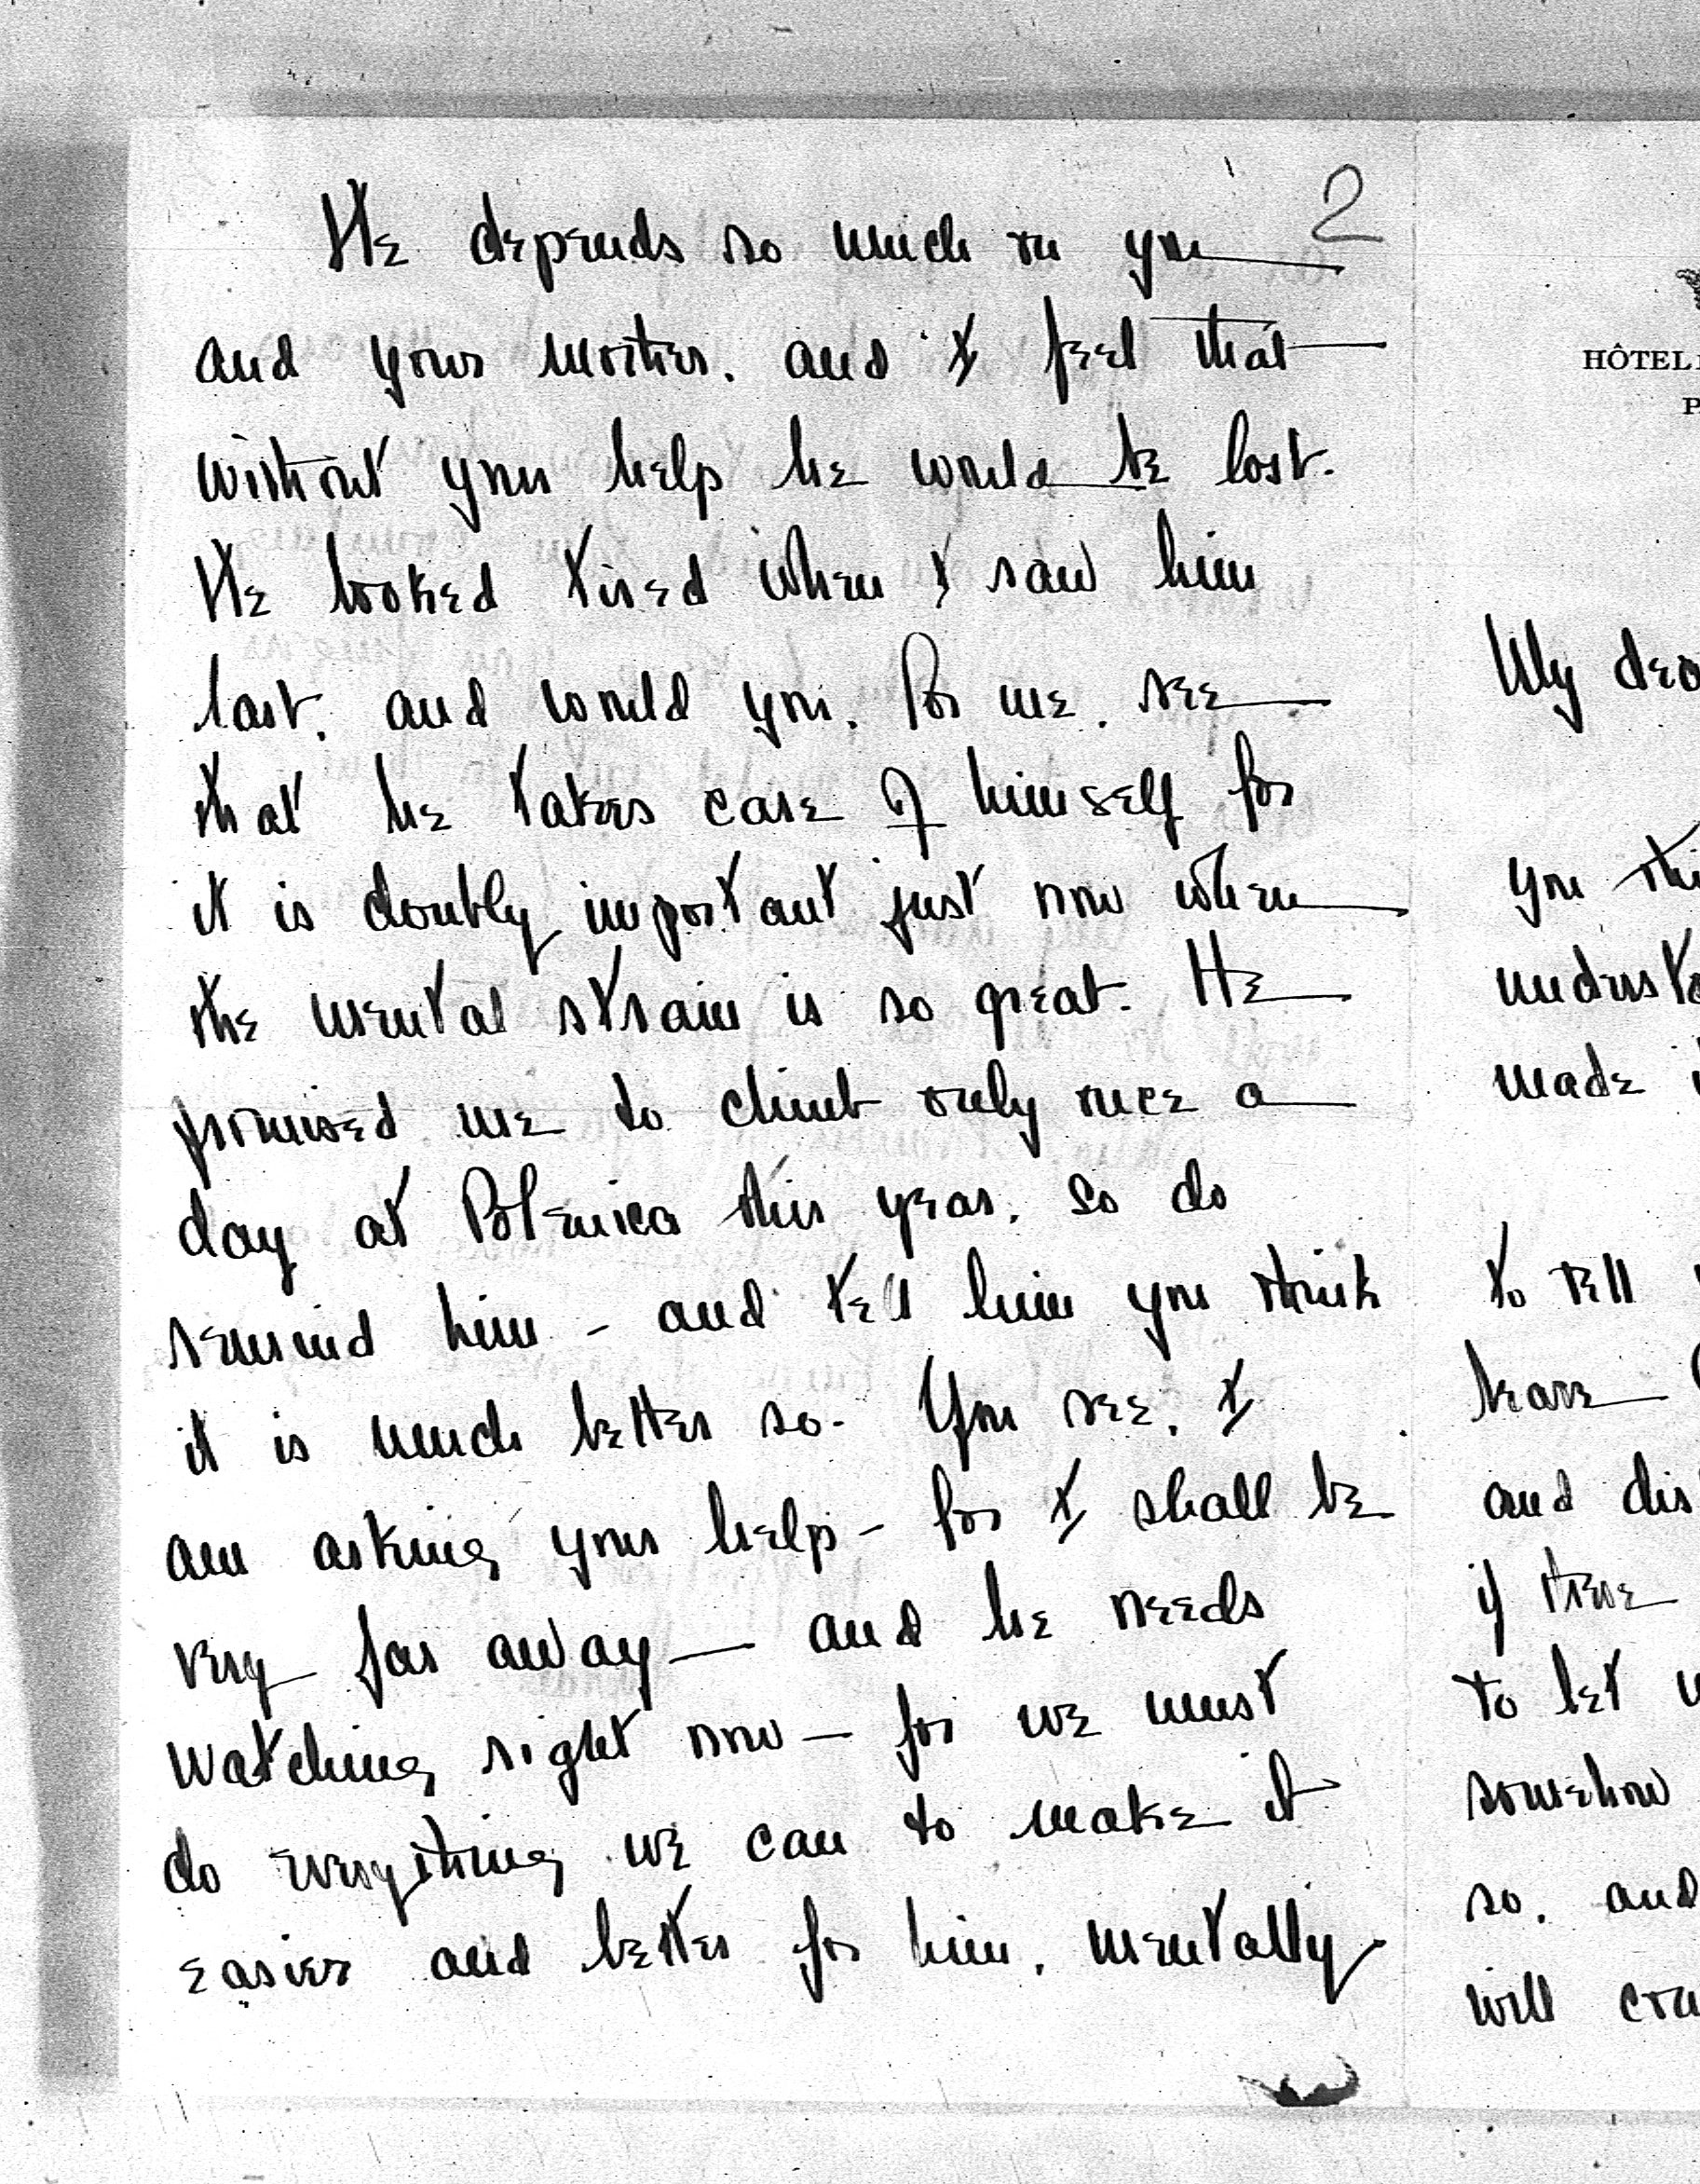 2
He depends so much on you
and your mother. and I feel that
without your help he would be lost.
He looked tired when I saw him
last. and would you. for me. see
that he takes care of himself for
it is doubly important just now when
the mental strain is so great. He
promised me to climb only once a
day at Potenica this year. so do
remind him - and tell him you think
it is much better so. You see. I
am asking your help - for I shall be
very far away — and he needs
watching right now — for we must
do everything we can to make it
easier and better for him. mentally
HÔTEL
P
My dea
you thi
underst
made i
to tell
leave
and dis
if there
to let
somehow
so. and
will